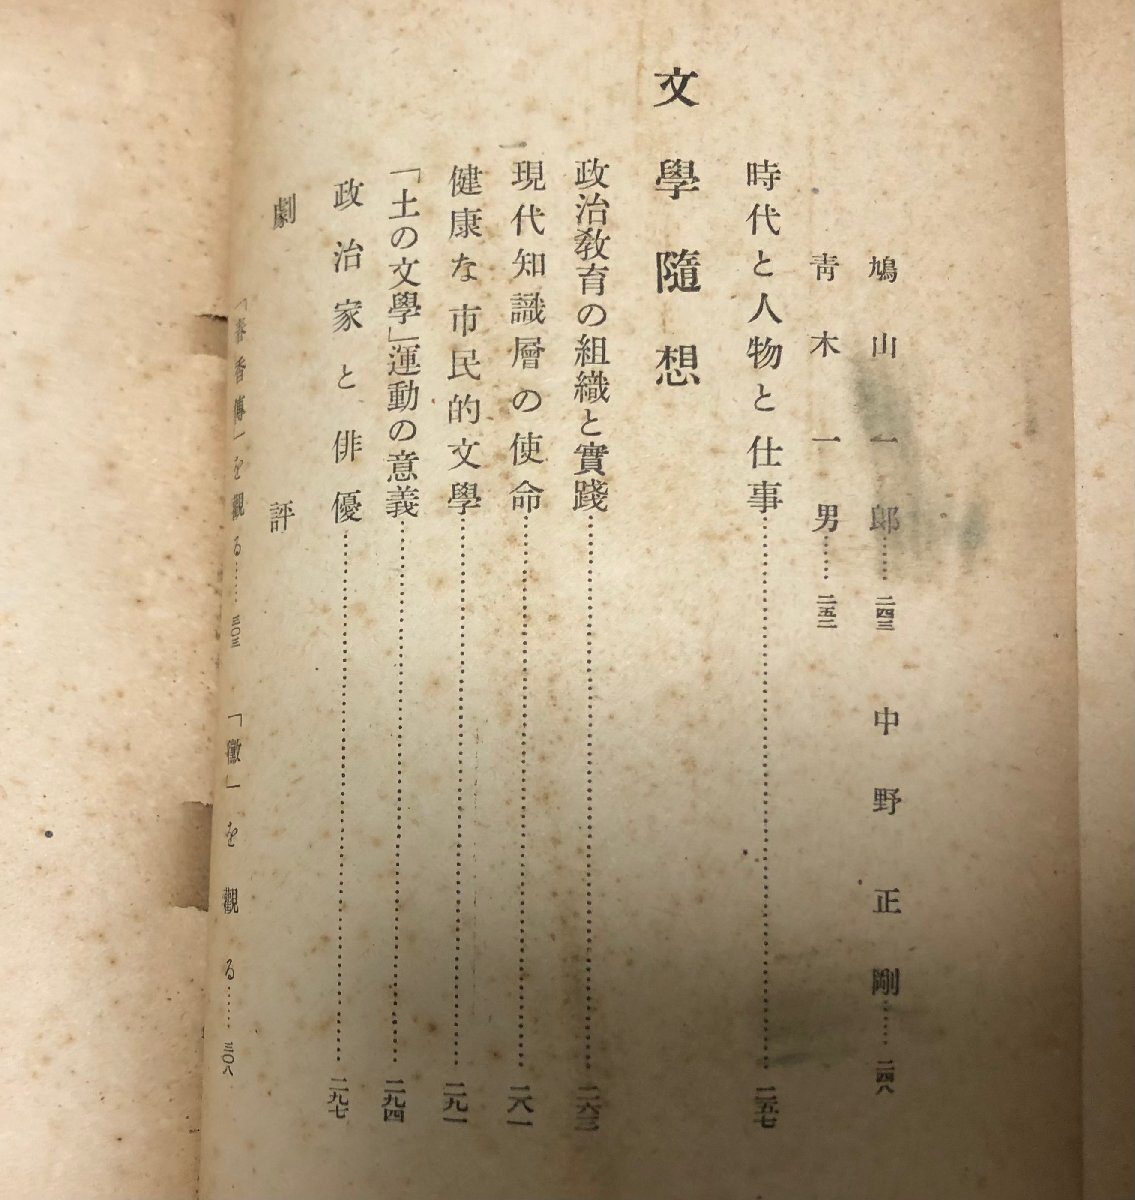 鳩山一郎……二四三　中野正剛……二四八
青木一男……二五二
時代と人物と仕事……二五七
文學隨想
政治教育の組織と實踐……二六三
現代知識層の使命……二八一
健康な市民的文學……二九一
「土の文學」運動の意義……二九四
政治家と俳優……二九七
劇評
「春香傳」を觀る……三〇三　「黴」を觀る……三〇八